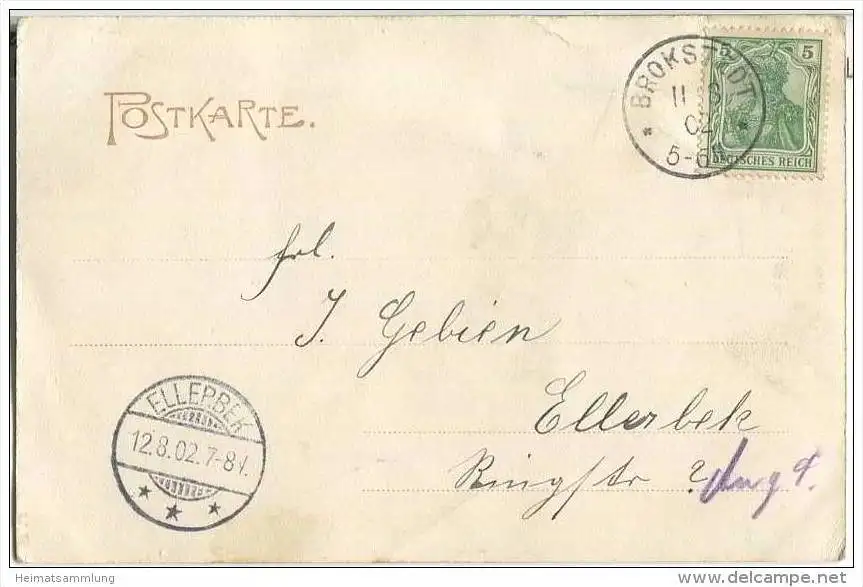 POSTKARTE.
BROKSTEDT
11 8
02
5-6
5 5
DEUTSCHES REICH
frl.
J. Gebien
Ellerbek
Ringstr ?
ELLERBEK
12.8.02.7-8V.
Heimatsammlung
delcampe.net